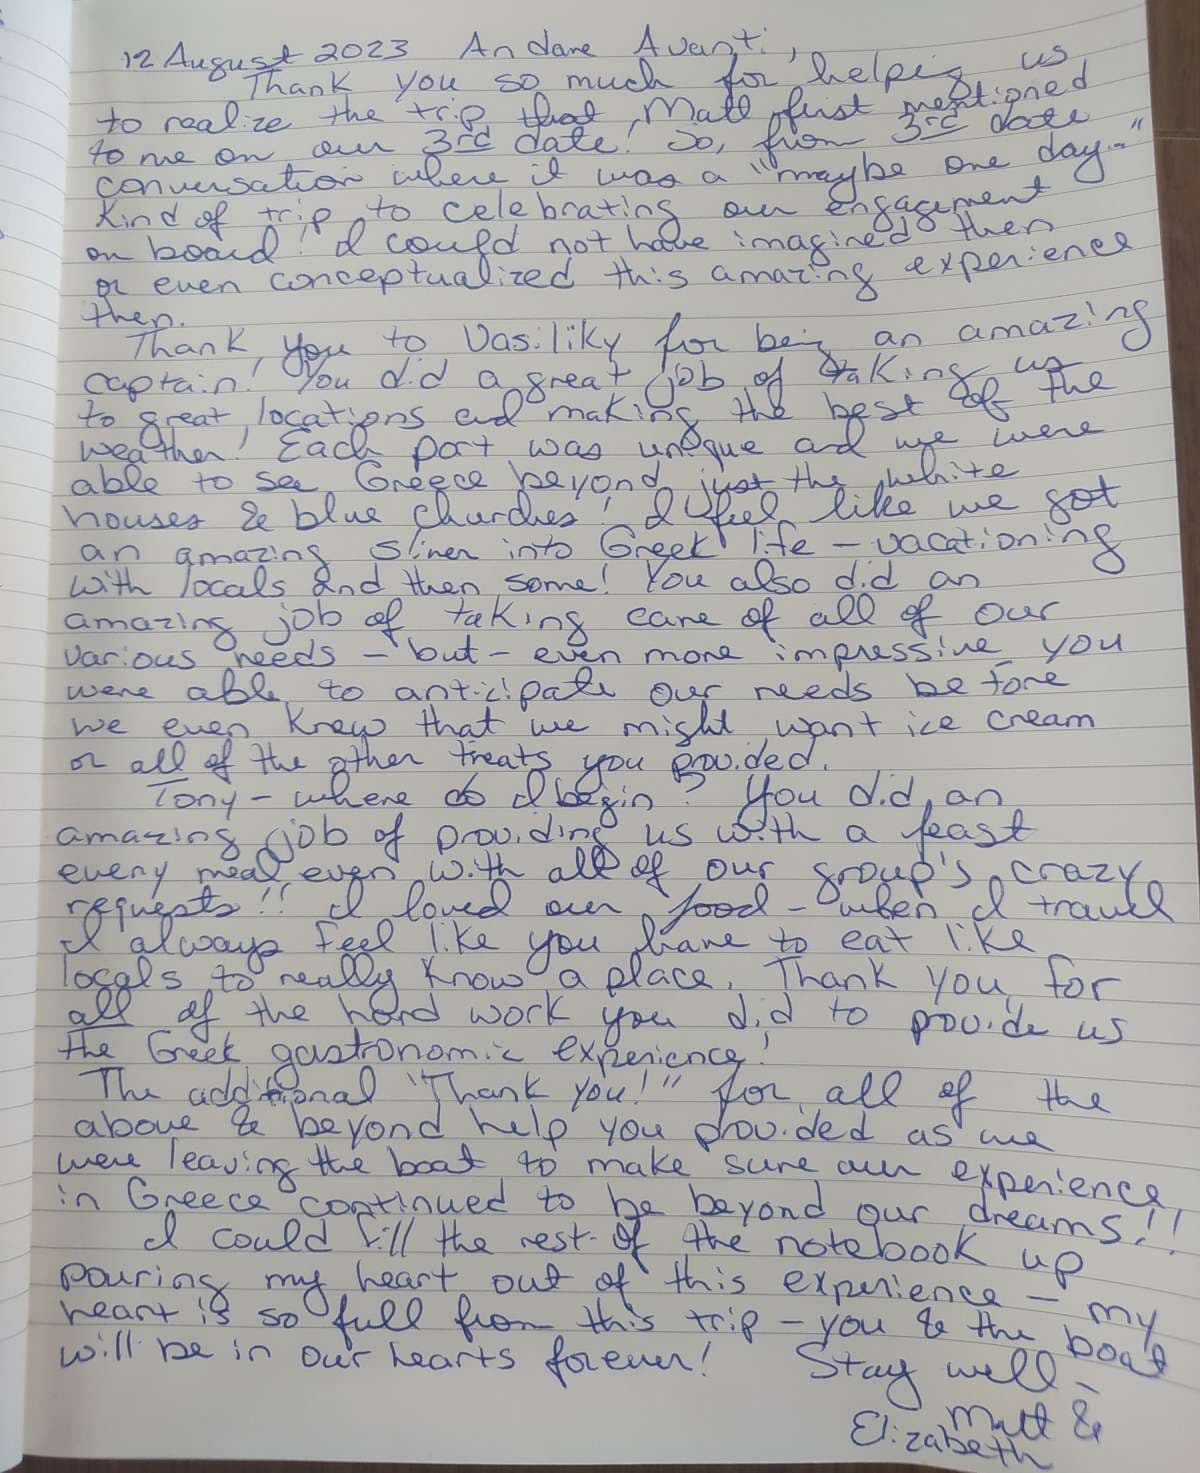 12 August 2023 Andare Avanti,
Thank you so much for helping us
to realize the trip that Matt first mentioned
to me on our 3rd date! So, from 3rd date
conversation where it was a "maybe one day..."
kind of trip to celebrating our engagement
on board! I could not have imagined then
or even conceptualized this amazing experience
then.
Thank you to Vasiliky for being an amazing
captain! You did a great job of taking us
to great locations and making the best of the
weather! Each port was unique and we were
able to see Greece beyond just the white
houses & blue churches! I feel like we got
an amazing sliver into Greek life - vacationing
with locals and then some! You also did an
amazing job of taking care of all of our
various needs - but - even more impressive you
were able to anticipate our needs before
we even knew that we might want ice cream
or all of the other treats you provided.
Tony - where do I begin? You did an
amazing job of providing us with a feast
every meal even with all of our group's crazy
requests!! I loved our food - when I travel
I always feel like you have to eat like
locals to really know a place. Thank you for
all of the hard work you did to provide us
the Greek gastronomic experience!
The additional "Thank you!" for all of the
above & beyond help you provided as we
were leaving the boat to make sure our experience
in Greece continued to be beyond our dreams!!
I could fill the rest of the notebook up
pouring my heart out of this experience - my
heart is so full from this trip - you & the boat
will be in our hearts forever! Stay well -
Matt &
Elizabeth